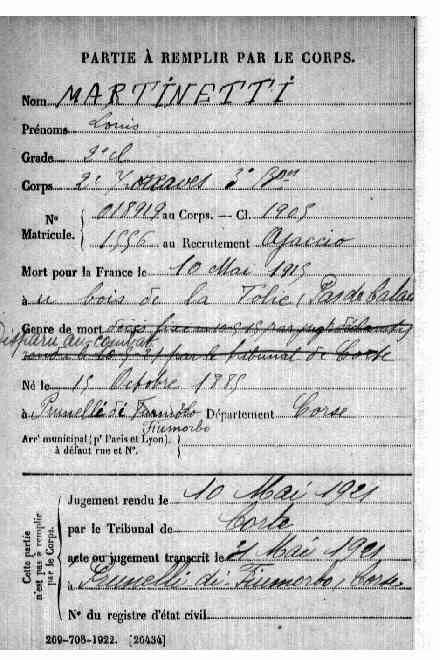 PARTIE À REMPLIR PAR LE CORPS.
Nom MARTINETTI
Prénoms Louis
Grade 2e cl
Corps 2e Zouaves 3e Bon
N° Matricule. { 018919 au Corps. — Cl. 1905
1556 au Recrutement Ajaccio
Mort pour la France le 10 Mai 1915
à u bois de la Folie, Pas de Calais
Genre de mort
Disparu au combat
rendu le 10-5-21 par le tribunal de Corte
Né le 15 Octobre 1885
à Prunelli di Fiumorbo Département Corse
Fiumorbo
Arrt municipal (pr Paris et Lyon),
à défaut rue et N°.
Cette partie n'est pas à remplir par le Corps.
Jugement rendu le 10 Mai 1921
par le Tribunal de Corte
acte ou jugement transcrit le 21 Mai 1921
à Prunelli-di-Fiumorbo, Corse.
N° du registre d'état civil
269-708-1922. [26434]